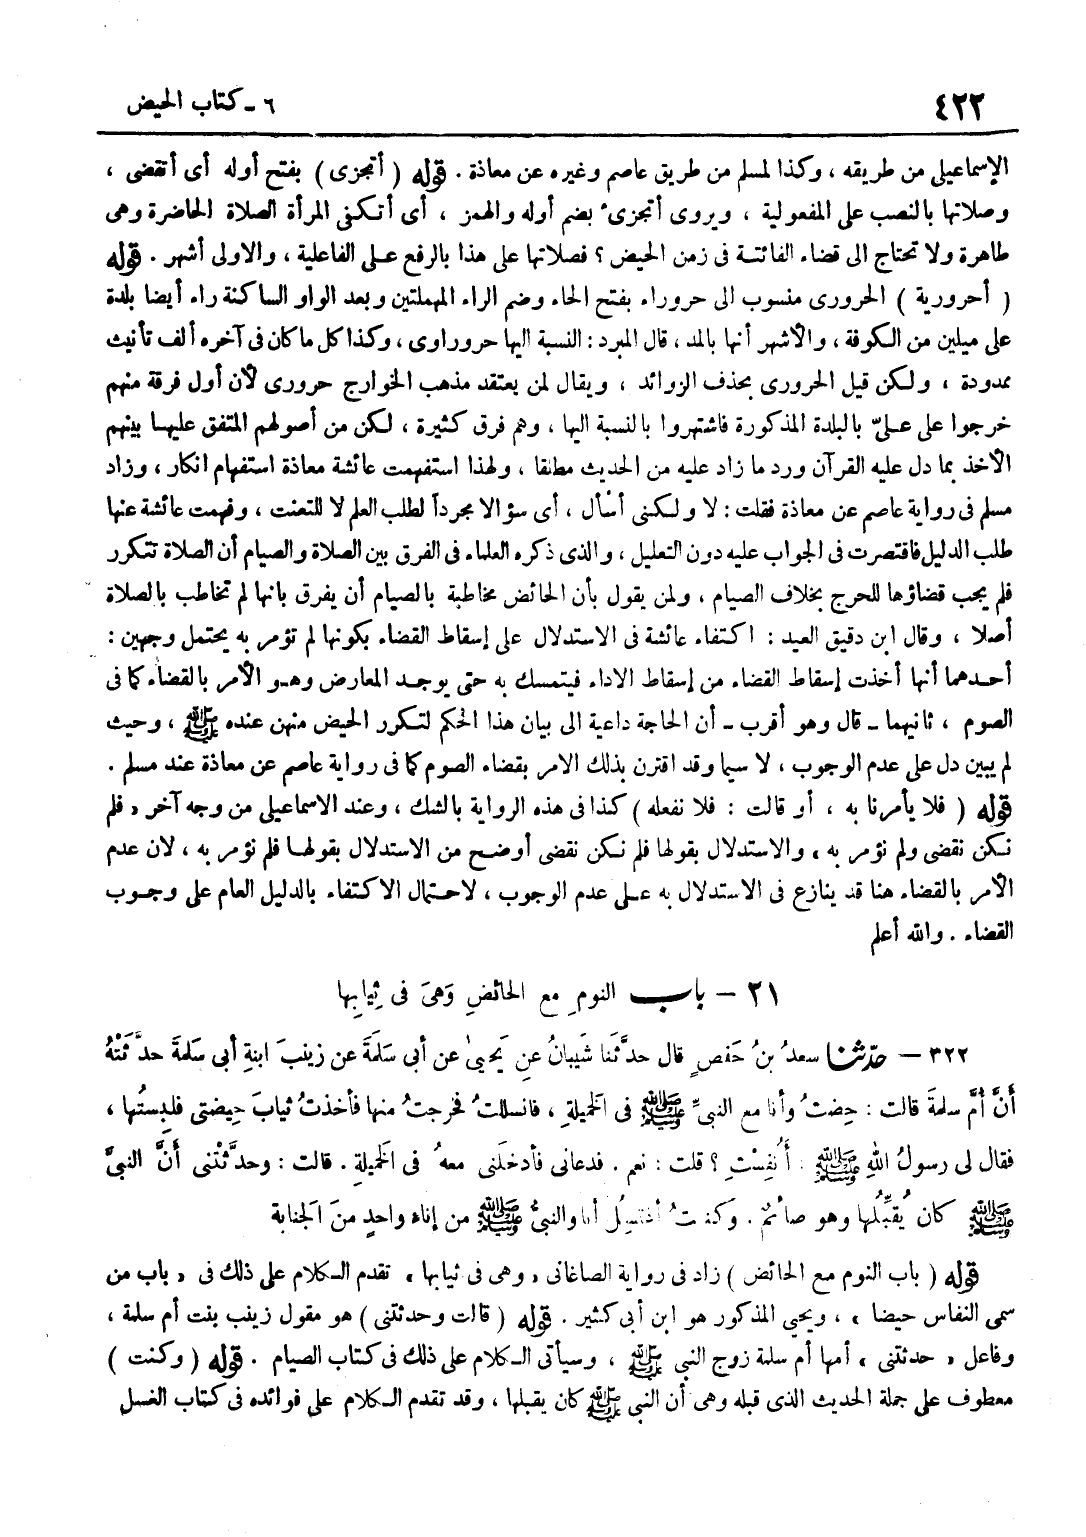 ٤٢٢
٦ - كتاب الحيض
الإسماعيلى من طريقه ، وكذا لمسلم من طريق عاصم وغيره عن معاذة . قوله ( أتجزى ) بفتح أوله أى أتقضى ،
وصلاتها بالنصب على المفعولية ، ويروى أتجزىء بضم أوله والهمز ، أى أتكفى المرأة الصلاة الحاضرة وهى
طاهرة ولا تحتاج الى قضاء الفائتة فى زمن الحيض ؟ فصلاتها على هذا بالرفع على الفاعلية ، والاولى أشهر . قوله
( أحرورية ) الحرورى منسوب الى حروراء بفتح الحاء وضم الراء المهملتين وبعد الواو الساكنة راء أيضا بلدة
على ميلين من الكوفة ، والأشهر أنها بالمد ، قال المبرد : النسبة اليها حروراوى ، وكذا كل ما كان فى آخره ألف تأنيث
ممدودة ، ولكن قيل الحرورى بحذف الزوائد ، ويقال لمن يعتقد مذهب الخوارج حرورى لأن أول فرقة منهم
خرجوا على علىّ بالبلدة المذكورة فاشتهروا بالنسبة اليها ، وهم فرق كثيرة ، لكن من أصولهم المتفق عليها بينهم
الأخذ بما دل عليه القرآن ورد ما زاد عليه من الحديث مطلقا ، ولهذا استفهمت عائشة معاذة استفهام انكار ، وزاد
مسلم فى رواية عاصم عن معاذة فقلت : لا ولكنى أسأل ، أى سؤالا مجرداً لطلب العلم لا للتعنت ، وفهمت عائشة عنها
طلب الدليل فاقتصرت فى الجواب عليه دون التعليل ، والذى ذكره العلماء فى الفرق بين الصلاة والصيام أن الصلاة تتكرر
فلم يجب قضاؤها للحرج بخلاف الصيام ، ولمن يقول بأن الحائض مخاطبة بالصيام أن يفرق بانها لم تخاطب بالصلاة
أصلا ، وقال ابن دقيق العيد : اكتفاء عائشة فى الاستدلال على إسقاط القضاء بكونها لم تؤمر به يحتمل وجهين :
أحدهما أنها أخذت إسقاط القضاء من إسقاط الاداء فيتمسك به حتى يوجد المعارض وهو الأمر بالقضاء كما فى
الصوم ، ثانيهما - قال وهو أقرب - أن الحاجة داعية الى بيان هذا الحكم لتكرر الحيض منهن عنده ﷺ ، وحيث
لم يبين دل على عدم الوجوب ، لا سيما وقد اقترن بذلك الامر بقضاء الصوم كما فى رواية عاصم عن معاذة عند مسلم .
قوله ( فلا يأمرنا به ، أو قالت : فلا نفعله ) كذا فى هذه الرواية بالشك ، وعند الاسماعيلى من وجه آخر « فلم
نكن نقضى ولم نؤمر به » والاستدلال بقولها فلم نكن نقضى أوضح من الاستدلال بقولها فلم نؤمر به ، لان عدم
الأمر بالقضاء هنا قد ينازع فى الاستدلال به على عدم الوجوب ، لاحتمال الاكتفاء بالدليل العام على وجوب
القضاء . والله أعلم
٢١ - باب النومِ مع الحائضِ وَهىَ فى ثِيابِها
٣٢٢ - حدّثنا سعدُ بنُ حَفصٍ قال حدَّثَنا شَيبانُ عن يَحيىٰ عن أبى سَلَمةَ عن زينبَ ابنةِ أبى سَلمةَ حدَّثَتْهُ
أَنَّ أُمَّ سلمةَ قالت : حِضتُ وأنا مع النبىِّ ﷺ فى الخميلةِ ، فانسللتُ فخرجتُ منها فأخذتُ ثيابَ حِيضتى فلَبِستُها ،
فقال لى رسولُ اللهِ ﷺ : أَنُفِسْتِ ؟ قلت : نعم . فدعانى فأدخلَنى معهُ فى الخميلةِ . قالت : وحدَّثَتْنى أنَّ النبىَّ
ﷺ كان يُقبِّلُها وهو صائمٌ . وكنتُ أغتسِلُ أنا والنبىُّ ﷺ من إناءٍ واحدٍ منَ الجنابة
قوله ( باب النوم مع الحائض ) زاد فى رواية الصاغانى « وهى فى ثيابها » تقدم الكلام على ذلك فى « باب من
سمى النفاس حيضا » ، ويحيى المذكور هو ابن أبى كثير . قوله ( قالت وحدثتنى ) هو مقول زينب بنت أم سلمة ،
وفاعل « حدثتنى » أمها أم سلمة زوج النبى ﷺ ، وسيأتى الكلام على ذلك فى كتاب الصيام . قوله ( وكنت )
معطوف على جملة الحديث الذى قبله وهى أن النبى ﷺ كان يقبلها ، وقد تقدم الكلام على فوائده فى كتاب الغسل